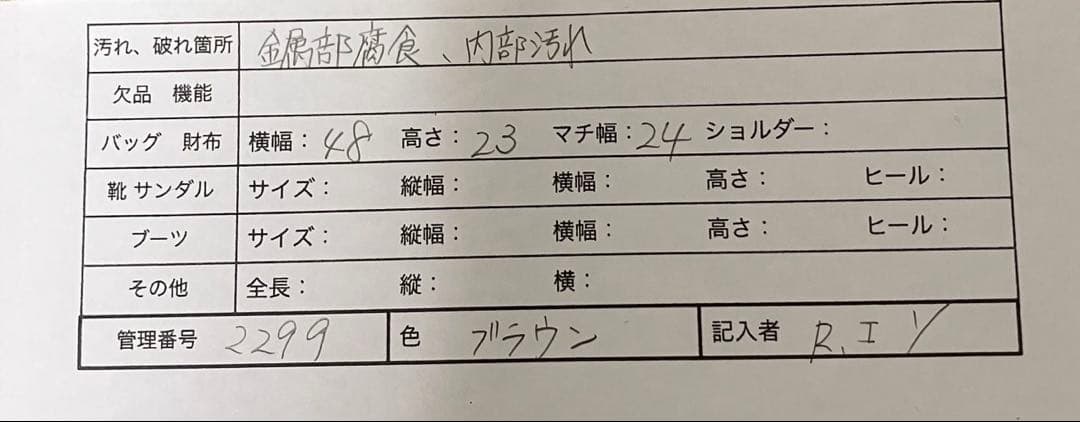 汚れ、破れ箇所 金属部腐食、内部汚れ
欠品 機能
バッグ 財布 横幅：48 高さ：23 マチ幅：24 ショルダー：
靴 サンダル サイズ： 縦幅： 横幅： 高さ： ヒール：
ブーツ サイズ： 縦幅： 横幅： 高さ： ヒール：
その他 全長： 縦： 横：
管理番号 2299 色 ブラウン 記入者 R.エリ